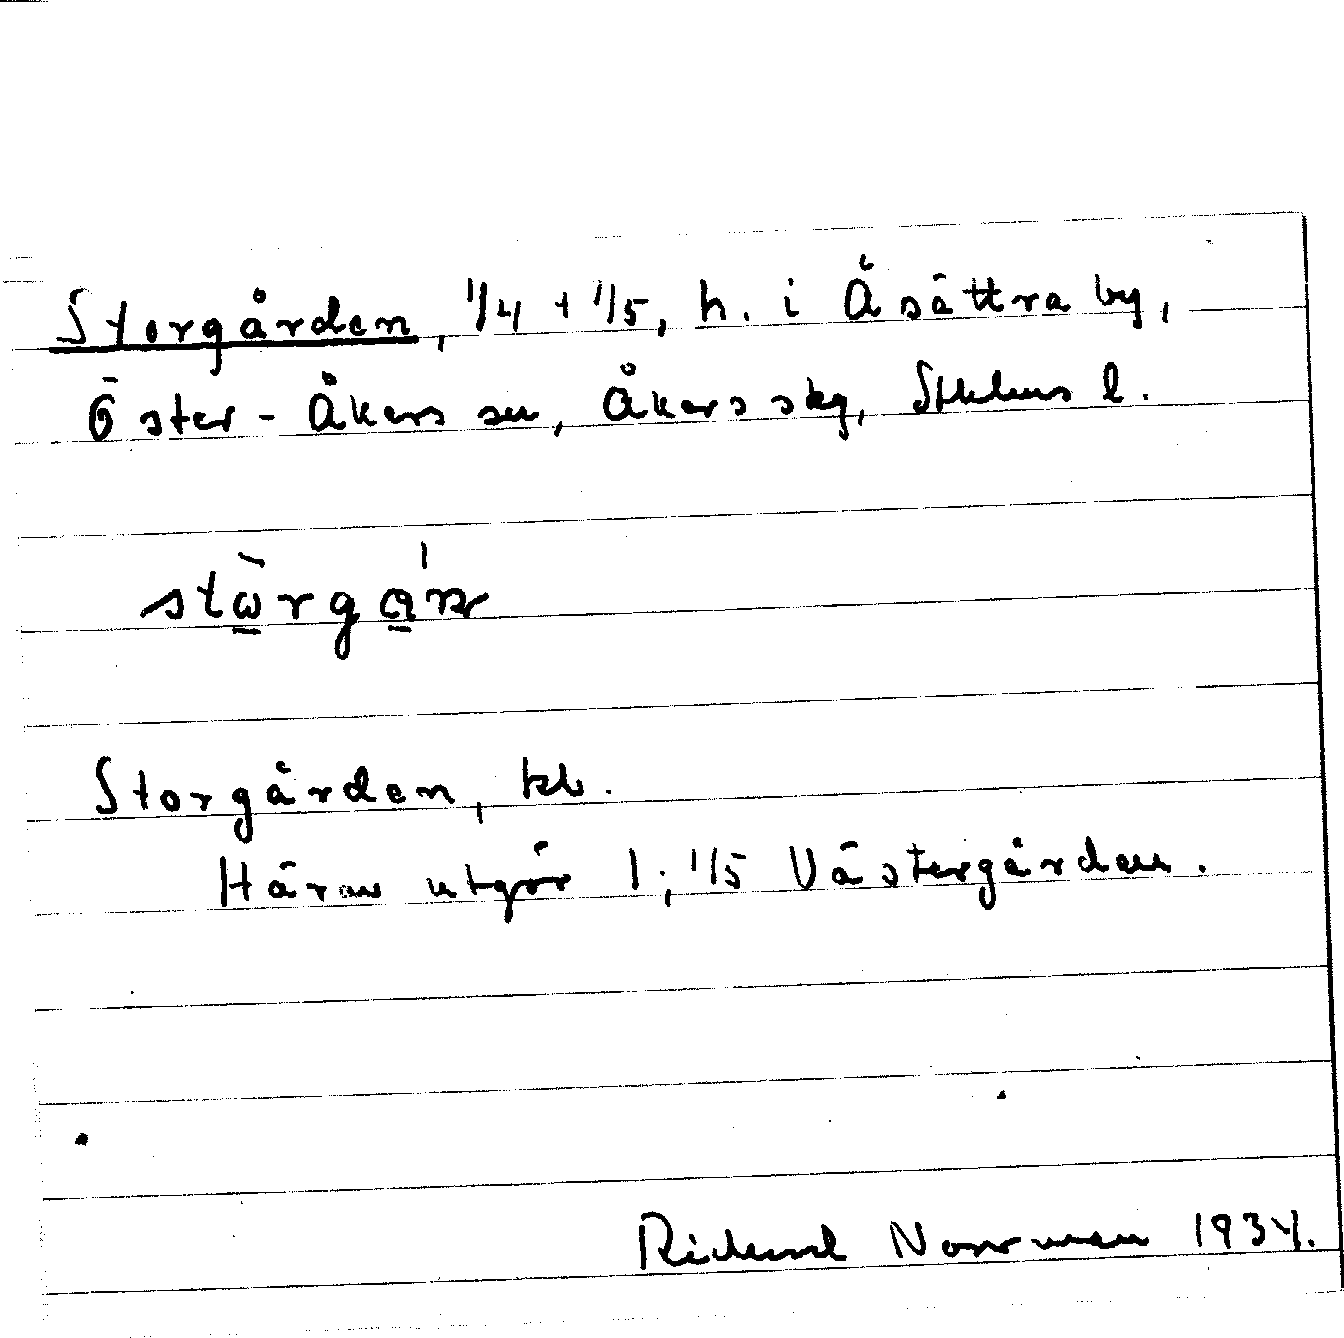 Storgården, 1/4 + 1/5, h. i Åsättra by,
Öster-Åkers sn, Åkers skg, Sthlms l.
Storgården, kb.
Härav utgör 1; 1/5 Västergården.
Rickard Norrman 1934.